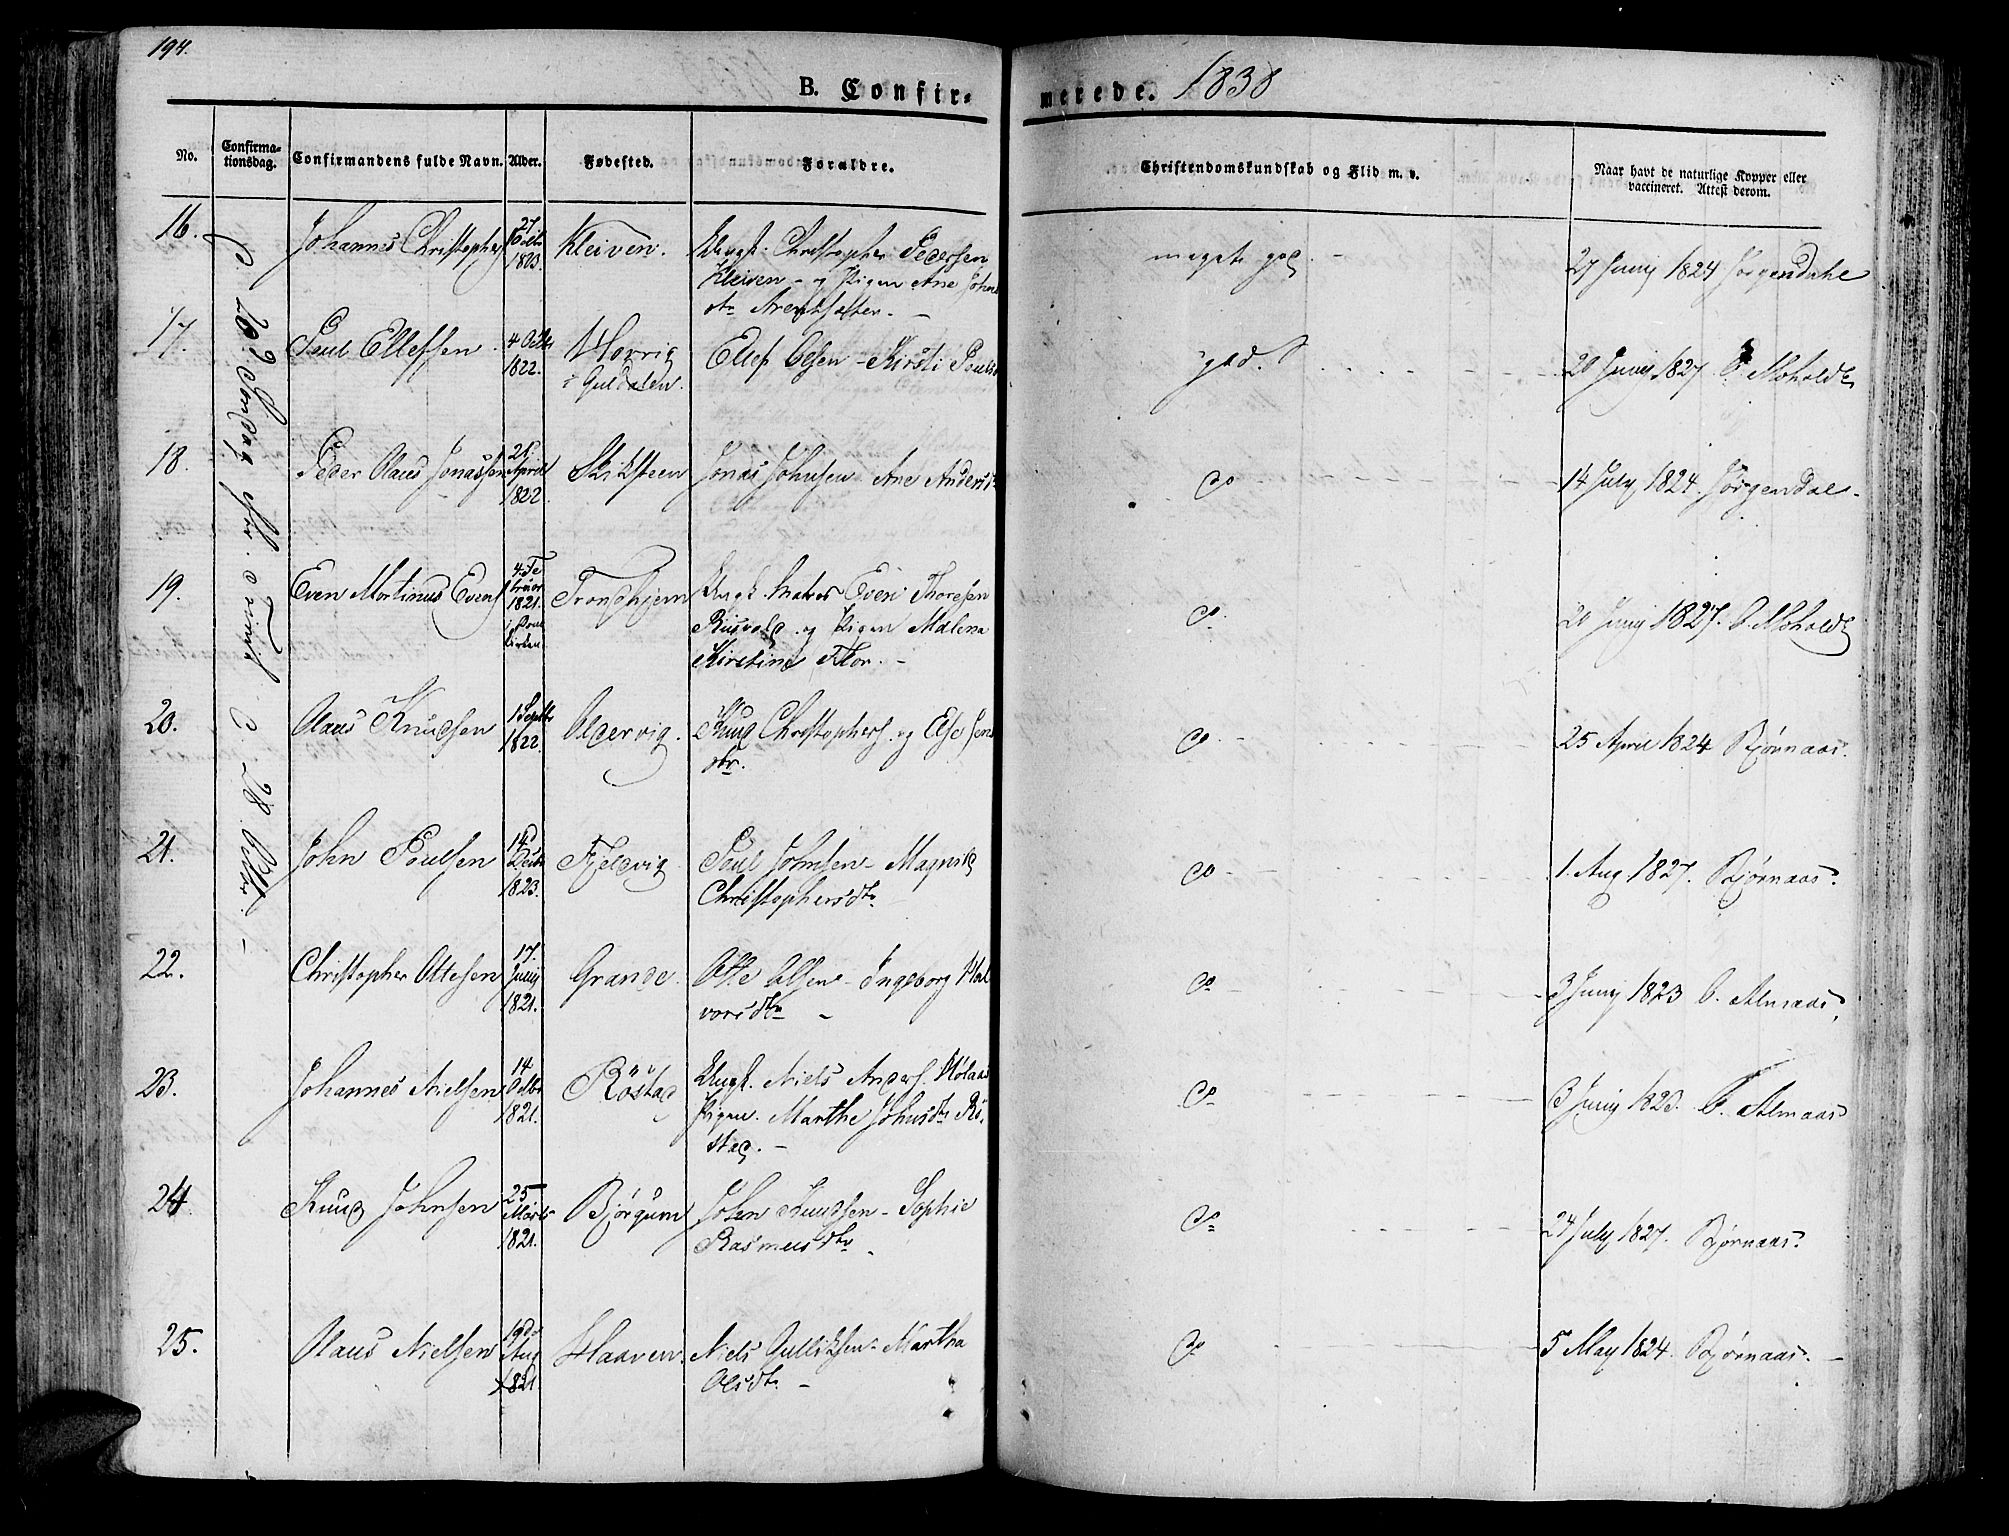 194.
B. Confirmerede. 1838
No.
Confirmationsdag.
Confirmandens fulde Navn.
Alder.
Fødested.
Forældre.
Christendomskundskab og Flid m. v.
Naar havt de naturlige Kopper eller
vaccineret. Attest derom.
d. 20d Søndag efter Trinit. d. 28 Octbr. -
16.
Johannes Christophers
27
Octbr
1823.
Kleiven.
Ungk. Christopher Pedersen
Kleiven - og Pigen Ane Johns
dtr
meget god. -
27 Junij 1824 Jørgendahl
17.
Paul Ellefsen
4 Octbr
1822.
Horrig
i Guldalen.
Ellef Olsen - Kirsti Pouls
god.
20 Junij 1827. O. Moholdt
18.
Peder Olaus Jonassen
21
April
1822.
Skiksteen
Jonas Johnsen Ane Andersd
do
14 July 1824. Jørgendal.
19.
Even Mortinus Evens
4. Fe
bruar
1821.
Trondhjem
Ungk. Matros Even Thoresen
Risvold og Pigen Malena
Kirstine Flor. -
do.
20 Junij 1827. O. Moholdt
20.
Olaus Knudsen
1 Septbr
1822.
Oldervig.
Knud Christophers. og Else Jens
dtr.
do.
25 April 1824 Bjørnaas.
21.
John Poulsen
14d
Decbr
1823.
Fjeldvig
Poul Johnsen - Magnild
Christophersdtr.
do
1. Aug 1827. Bjørnaas.
22.
Christopher Ottesen
17.
Junij
1821.
Grande.
Otte Olsen - Ingeborg Hal
vorsdtr -
do
3 Junij 1823 O. Almaas.
23.
Johannes Nielsen
14
Octbr
1821.
Röstad
Ungk. Niels Anders. Hølaas
Pigen. Marthe Johnsdtr Rö
stad. -
do
3 Junij 1823. O. Almaas
24.
Knud Johnsen
25
Marts
1821.
Bjørgum
John Knudsen - Sophie
Rasmusdtr
do
24 July 1827. Bjørnaas.
25.
Olaus Nielsen
19de
Aug
1821.
Haaven.
Niels Gulliksen - Martha
Olsdtr. -
do
5 May 1824. Bjørnaas. -